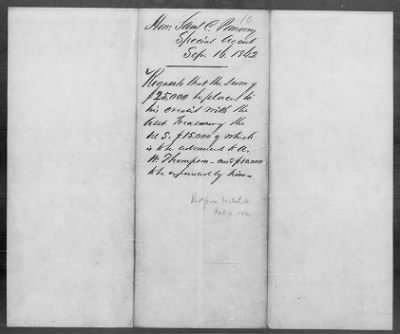 10
Hon. Saml. C. Pomeroy
Special Agent
Sep. 16. 1862
Requests that the sum of
$25,000 be placed to
his credit with the
Asst. Treasurer of the
U. S. $15.000 of which
is to be advanced to A.
W. Thompson - and $10000
to be expended by him -